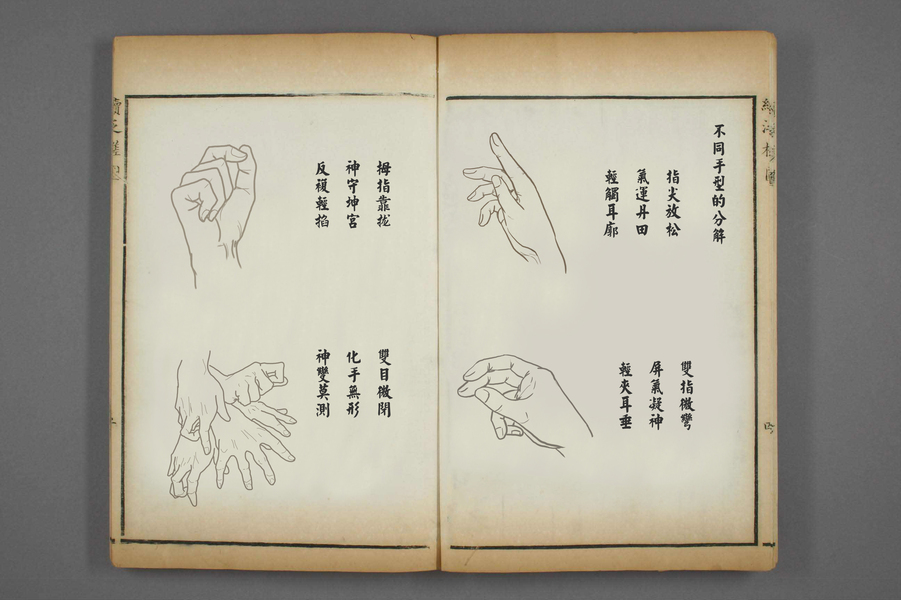 不同手型的分解
指尖放松
氣運丹田
輕觸耳廓
雙指微彎
屏氣凝神
輕夾耳垂
拇指靠拢
神守坤宮
反複輕掐
雙目微閉
化手無形
神變莫測